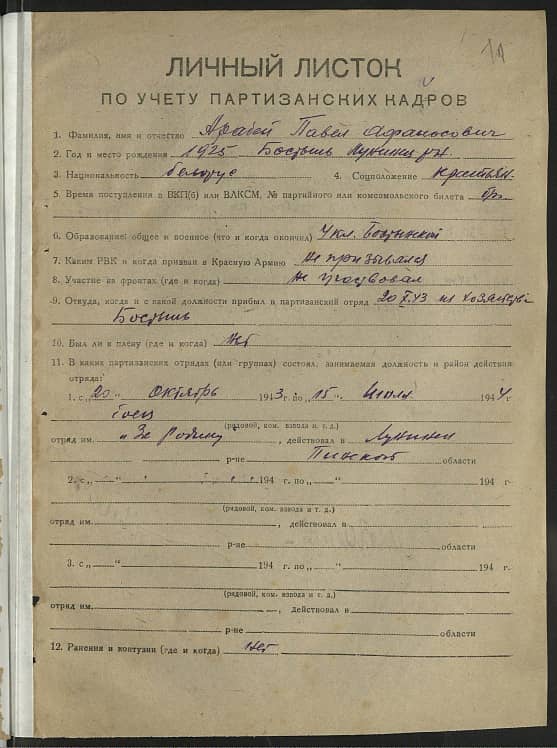 ЛИЧНЫЙ ЛИСТОК
ПО УЧЕТУ ПАРТИЗАНСКИХ КАДРОВ
1. Фамилия, имя и отчество Арабей Павел Афанасович
2. Год и место рождения 1925 Бостынь Лунинц р-н.
3. Национальность белорус 4. Соцположение крестьян
5. Время поступления в ВКП(б) или ВЛКСМ, № партийного или комсомольского билета
6. Образование: общее и военное (что и когда окончил) 4 кл. Бостынской
7. Каким РВК и когда призван в Красную Армию Не призывался
8. Участие на фронтах (где и когда) Не участвовал
9. Откуда, когда и с какой должности прибыл в партизанский отряд 20 X.43 из хозяйства
Бостынь
10. Был ли в плену (где и когда) Нет
11. В каких партизанских отрядах (или группах) состоял, занимаемая должность и район действия
отряда:
1. с „20“ Октябрь 1943 г. по „15“ Июля 1944 г
боец
(рядовой, ком. взвода и т. д.)
отряд им. „За Родину“, действовал в Лунинец
р-не Пинской области
2. с „ “ 194 г. по „ “ 194 г.
(рядовой, ком. взвода и т. д.)
отряд им. , действовал в
р-не области
3. с „ “ 194 г. по „ “ 194 г.
(рядовой, ком. взвода и т. д.)
отряд им. , действовал в
р-не области
12. Ранения и контузии (где и когда) нет